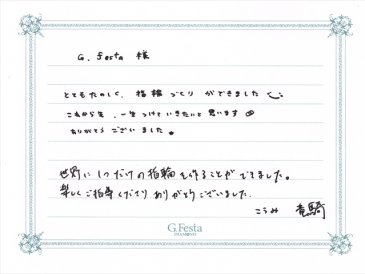 G. festa 様
とてもたのしく、指輪づくりができました
これから先、一生つけていきたいと思います
ありがとうございました。
世界に1つだけの指輪を作ることができました。
楽しくご指導くださりありがとうございました。
こうみ 竜騎
G.Festa
DIAMOND